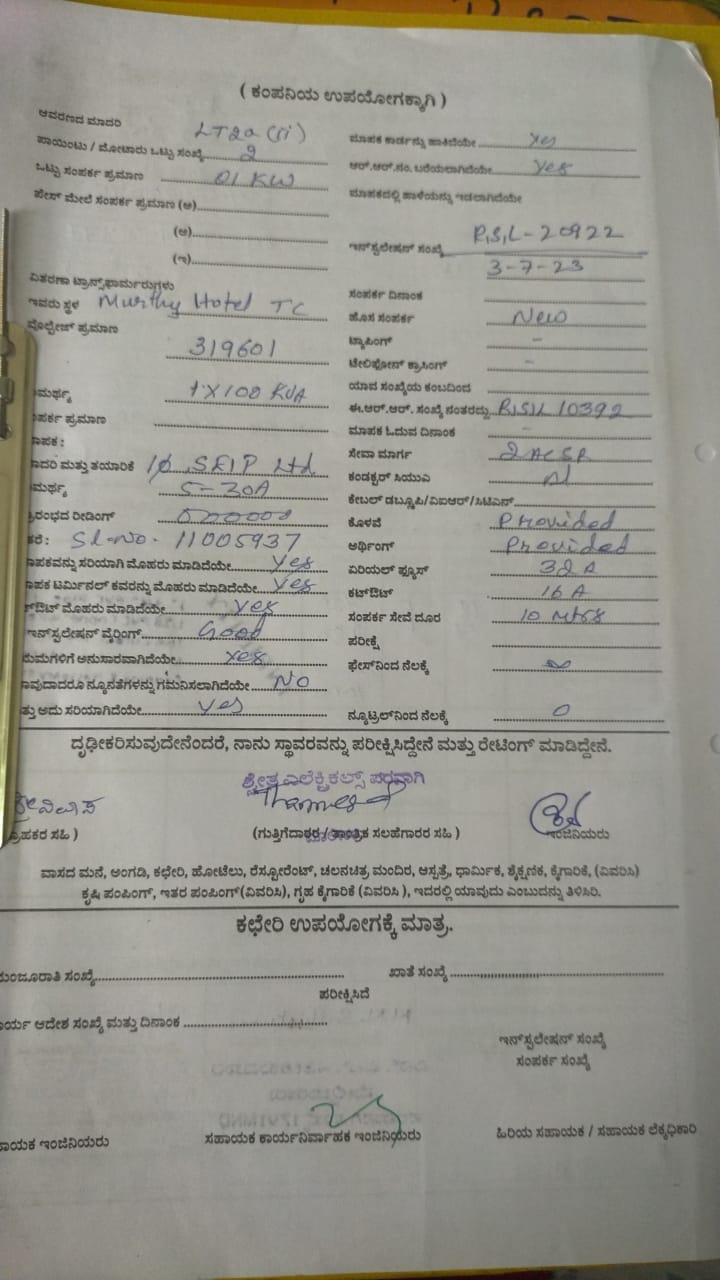 ( ಕಂಪನಿಯ ಉಪಯೋಗಕ್ಕಾಗಿ )
ಆವರಣದ ಮಾದರಿ LT2a (ii)
ಪಾಯಿಂಟು / ಮೋಟಾರು ಒಟ್ಟು ಸಂಖ್ಯೆ 2
ಒಟ್ಟು ಸಂಪರ್ಕ ಪ್ರಮಾಣ 01 KW
ಫೇಸ್ ಮೇಲೆ ಸಂಪರ್ಕ ಪ್ರಮಾಣ (ಅ)
(ಆ)
(ಇ)
ವಿತರಣಾ ಟ್ರಾನ್ಸ್‌ಫಾರ್ಮರುಗಳು
ಇವರು ಸ್ಥಳ Murthy Hotel TC
ವೊಲ್ಟೇಜ್ ಪ್ರಮಾಣ
319601
ಮರ್ಥ್ಯ 1X100 KVA
ಪರ್ಕ ಪ್ರಮಾಣ
ಾಪಕ :
ಾದರಿ ಮತ್ತು ತಯಾರಿಕೆ 1ϕ Ltd
ಮರ್ಥ್ಯ 5-30A
ರಂಭದ ರೀಡಿಂಗ್ 000000
ಕರೆ : Sl-No. 11005937
ಾಪಕವನ್ನು ಸರಿಯಾಗಿ ಮೊಹರು ಮಾಡಿದೆಯೇ yes
ಾಪಕ ಟರ್ಮಿನಲ್ ಕವರನ್ನು ಮೊಹರು ಮಾಡಿದೆಯೇ yes
ಟ್‌ಔಟ್ ಮೊಹರು ಮಾಡಿದೆಯೇ yes
ಇನ್‌ಸ್ಟಲೇಷನ್ ವೈರಿಂಗ್ Good
ಯಮಗಳಿಗೆ ಅನುಸಾರವಾಗಿದೆಯೇ yes
ಾವುದಾದರೂ ನ್ಯೂನತೆಗಳನ್ನು ಗಮನಿಸಲಾಗಿದೆಯೇ No
ತ್ತು ಅದು ಸರಿಯಾಗಿದೆಯೇ yes
ಮಾಪಕ ಕಾರ್ಡನ್ನು ಹಾಕಿದೆಯೇ yes
ಆರ್.ಆರ್.ನಂ. ಬರೆಯಲಾಗಿದೆಯೇ yes
ಮಾಪಕದಲ್ಲಿ ಹಾಳೆಯನ್ನು ಇಡಲಾಗಿದೆಯೇ
ಇನ್‌ಸ್ಟಲೇಷನ್ ಸಂಖ್ಯೆ R,S,L-20922
3-7-23
ಸಂಪರ್ಕ ದಿನಾಂಕ
ಹೊಸ ಸಂಪರ್ಕ New
ಟ್ಯಾಪಿಂಗ್ -
ಟೆಲಿಫೋನ್ ಕ್ರಾಸಿಂಗ್ -
ಯಾವ ಸಂಖ್ಯೆಯ ಕಂಬದಿಂದ
ಈ.ಆರ್.ಆರ್. ಸಂಖ್ಯೆ ನಂತರದ್ದು R,S,L 10392
ಮಾಪಕ ಓದುವ ದಿನಾಂಕ -
ಸೇವಾ ಮಾರ್ಗ 2 ACSR
ಕಂಡಕ್ಟರ್ ಸಿಯುವಿ Al
ಕೇಬಲ್ ಡಬ್ಲ್ಯೂಪಿ/ವಿಐಆರ್/ಸಿಟಿಎಸ್
ಕೊಳವೆ Provided
ಅರ್ಥಿಂಗ್ Provided
ಏರಿಯಲ್ ಫ್ಯೂಸ್ 32 A
ಕಟ್‌ಔಟ್ 16 A
ಸಂಪರ್ಕ ಸೇವೆ ದೂರ 10 Mtrs
ಪರೀಕ್ಷೆ
ಫೇಸ್‌ನಿಂದ ನೆಲಕ್ಕೆ
ನ್ಯೂಟ್ರಲ್‌ನಿಂದ ನೆಲಕ್ಕೆ 0
ದೃಢೀಕರಿಸುವುದೇನೆಂದರೆ, ನಾನು ಸ್ಥಾವರವನ್ನು ಪರೀಕ್ಷಿಸಿದ್ದೇನೆ ಮತ್ತು ರೇಟಿಂಗ್ ಮಾಡಿದ್ದೇನೆ.
ಎಲೆಕ್ಟ್ರಿಕಲ್ಸ್ ಪರವಾಗಿ
್ರಾಹಕರ ಸಹಿ )
(ಗುತ್ತಿಗೆದಾರರ / ತಾಂತ್ರಿಕ ಸಲಹೆಗಾರರ ಸಹಿ )
ಇಂಜಿನಿಯರು
ವಾಸದ ಮನೆ, ಅಂಗಡಿ, ಕಛೇರಿ, ಹೋಟೆಲು, ರೆಸ್ಟೋರೆಂಟ್, ಚಲನಚಿತ್ರ ಮಂದಿರ, ಆಸ್ಪತ್ರೆ, ಧಾರ್ಮಿಕ, ಶೈಕ್ಷಣಿಕ, ಕೈಗಾರಿಕೆ, (ವಿವರಿಸಿ)
ಕೃಷಿ ಪಂಪಿಂಗ್, ಇತರ ಪಂಪಿಂಗ್(ವಿವರಿಸಿ), ಗೃಹ ಕೈಗಾರಿಕೆ (ವಿವರಿಸಿ ), ಇದರಲ್ಲಿ ಯಾವುದು ಎಂಬುದನ್ನು ತಿಳಿಸಿರಿ.
ಕಛೇರಿ ಉಪಯೋಗಕ್ಕೆ ಮಾತ್ರ.
ಮಂಜೂರಾತಿ ಸಂಖ್ಯೆ
ಖಾತೆ ಸಂಖ್ಯೆ
ಪರೀಕ್ಷಿಸಿದೆ
ಾರ್ಯ ಆದೇಶ ಸಂಖ್ಯೆ ಮತ್ತು ದಿನಾಂಕ
ಇನ್‌ಸ್ಟಲೇಷನ್ ಸಂಖ್ಯೆ
ಸಂಪರ್ಕ ಸಂಖ್ಯೆ
ಾಯಕ ಇಂಜಿನಿಯರು
ಸಹಾಯಕ ಕಾರ್ಯನಿರ್ವಾಹಕ ಇಂಜಿನಿಯರು
ಹಿರಿಯ ಸಹಾಯಕ / ಸಹಾಯಕ ಲೆಕ್ಕಧಿಕಾರಿ